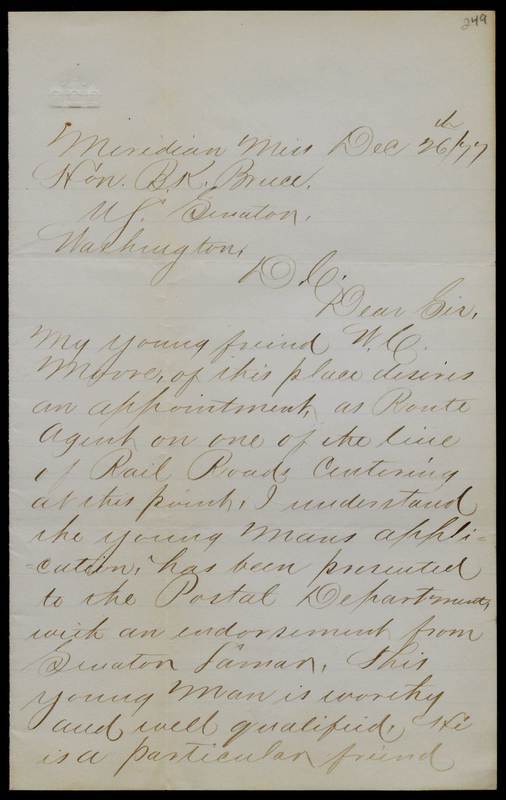 249
Meridian Miss Dec 26th/77
Hon. B. K. Bruce.
U.S. Senator.
Washington,
D.C.
Dear Sir,
My young friend W. C.
Moore, of this place desires
an appointment, as Route
Agent on one of the line
of Rail Roads Centering
at this point, I understand
the young Mans appli=
=cation, has been presented
to the Postal Department,
with an endorsement from
Senator Lamar, This
young Man is worthy
and well qualified, He
is a particular friend